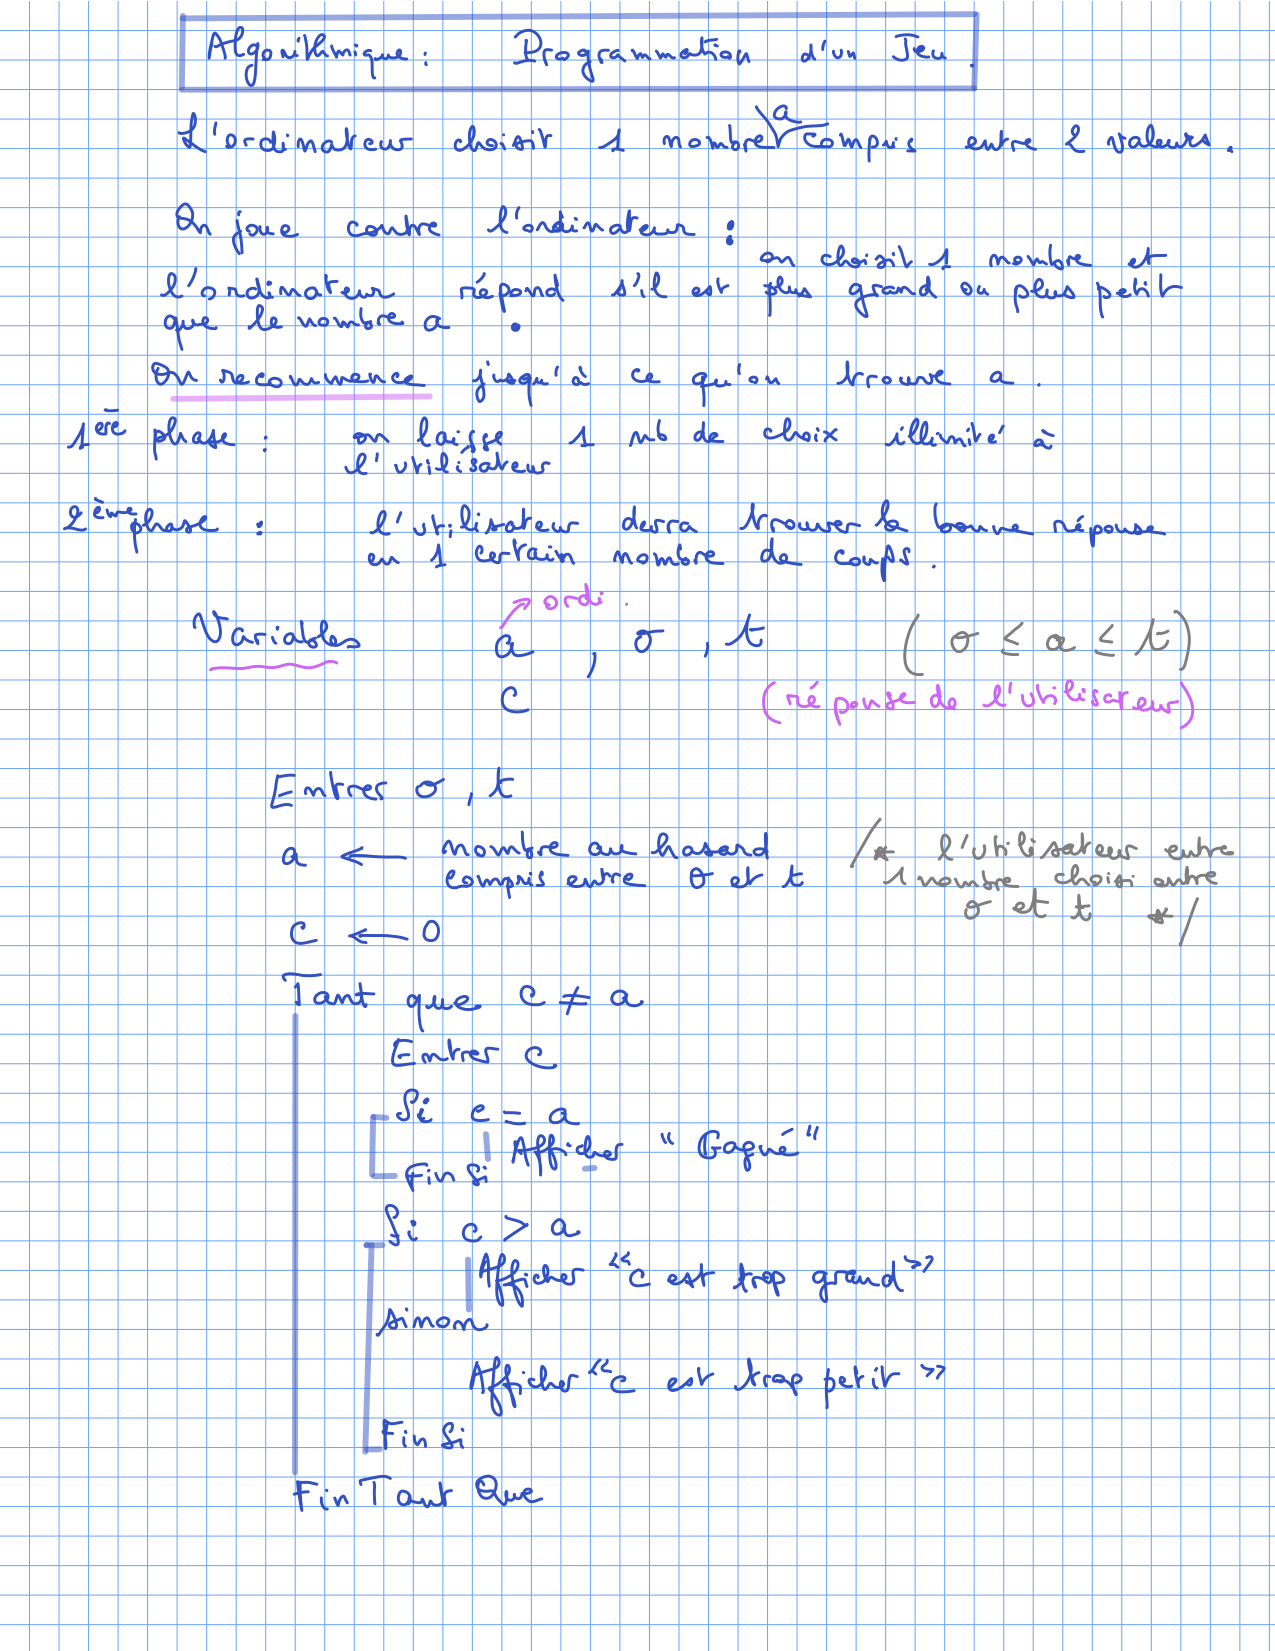 Algorithmique : Programmation d'un Jeu.
L'ordinateur choisit 1 nombre a compris entre 2 valeurs.
On joue contre l'ordinateur :
on choisit 1 nombre et
l'ordinateur répond s'il est plus grand ou plus petit
que le nombre a .
On recommence jusqu'à ce qu'on trouve a .
1ère phase : on laisse 1 nb de choix illimité à
l'utilisateur
2ème phase : l'utilisateur devra trouver la bonne réponse
en 1 certain nombre de coups.
ordi .
Variables a , σ , t ( σ ≤ a ≤ t )
c (réponse de l'utilisateur)
Entrer σ , t
a ← nombre au hasard /* l'utilisateur entre
compris entre σ et t 1 nombre choisi entre
σ et t */
c ← 0
Tant que c ≠ a
Entrer c
Si c = a
Afficher " Gagné "
Fin Si
Si c > a
Afficher "c est trop grand"
sinon
Afficher "c est trop petit "
Fin Si
Fin Tant Que